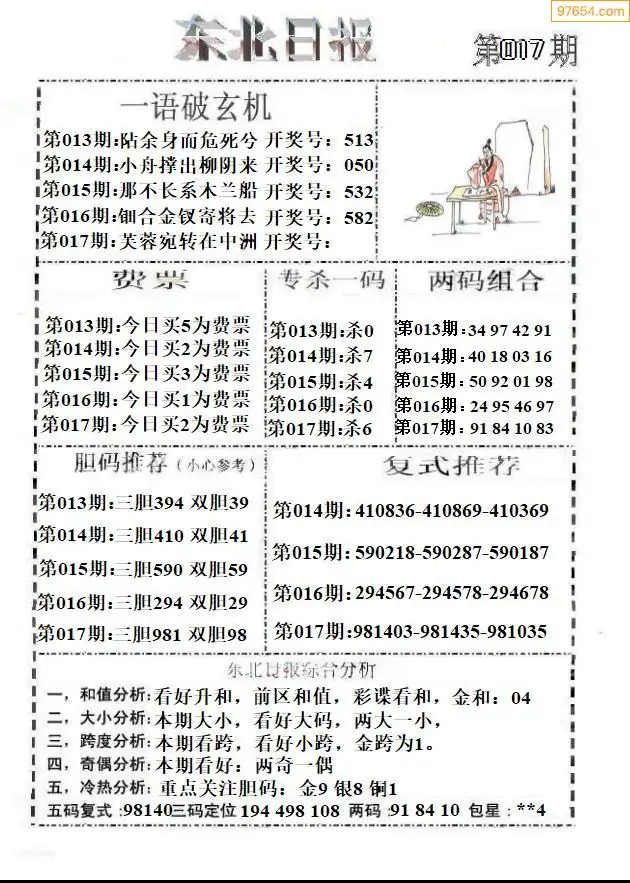 97654.com
东北日报
第017期
一语破玄机
第013期:阽余身而危死兮 开奖号：513
第014期:小舟撑出柳阴来 开奖号：050
第015期:那不长系木兰船 开奖号：532
第016期:钿合金钗寄将去 开奖号：582
第017期:芙蓉宛转在中洲 开奖号：
费票
第013期:今日买5为费票
第014期:今日买2为费票
第015期:今日买3为费票
第016期:今日买1为费票
第017期:今日买2为费票
专杀一码
第013期:杀0
第014期:杀7
第015期:杀4
第016期:杀0
第017期:杀6
两码组合
第013期:34 97 42 91
第014期:40 18 03 16
第015期:50 92 01 98
第016期:24 95 46 97
第017期:91 84 10 83
胆码推荐（小心参考）
第013期:三胆394 双胆39
第014期:三胆410 双胆41
第015期:三胆590 双胆59
第016期:三胆294 双胆29
第017期:三胆981 双胆98
复式推荐
第014期:410836-410869-410369
第015期:590218-590287-590187
第016期:294567-294578-294678
第017期:981403-981435-981035
东北日报综合分析
一，和值分析:看好升和，前区和值，彩谍看和，金和：04
二、大小分析:本期大小，看好大码，两大一小，
三，跨度分析:本期看跨，看好小跨，金跨为1。
四，奇偶分析:本期看好：两奇一偶
五，冷热分析:重点关注胆码：金9 银8 铜1
五码复式:98140三码定位194 498 108 两码:91 84 10 包星：**4